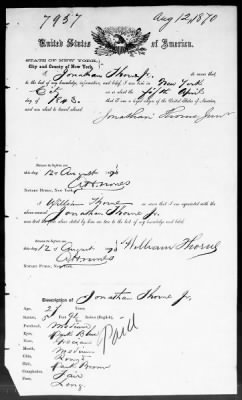 7957
Aug 12, 1870
United States of America.
STATE OF NEW YORK,
City and County of New York
I, Jonathan Thorne Jr. do swear that,
to the best of my knowledge, information, and belief, I was born in New York
City on or about the fifth April
day of 1843, that I am a
and am about to travel abroad.
Jonathan Thorne Junr
Sworn to before me
this day 12 of August 1870
NOTARY PUBLIC, New York
I, William Thorne do swear that I am acquainted with the above
named Jonathan Thorne Jr.
stated by him are true to the best of my knowledge and belief.
William Thorne
Sworn to before me
this day 12 of August 1870
NOTARY PUBLIC, New York.
Description of Jonathan Thorne Jr.
Age, 27
Stature, 5 feet 9½ inches (English).
Forehead, Medium
Eyes, Dark Blue
Nose,
Mouth, Medium
Chin,
Hair, Dark Brown
Complexion, Fair
Face, Long.
Paid